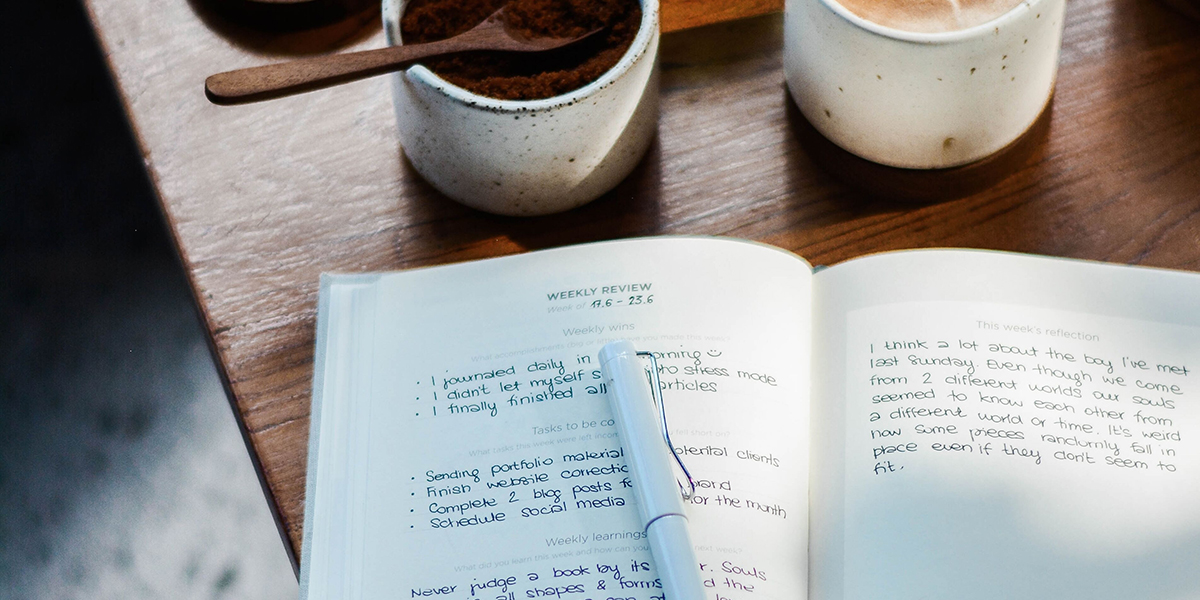 WEEKLY REVIEW
Week of 17.6 - 23.6
Weekly wins
· I journaled daily in orning ☺
· I didn't let myself s nto stress mode
· I finally finished all articles
Tasks to be co
What tasks this week were left
· Sending portfolio material otential clients
· Finish website correctio
· Complete 2 blog posts fo brand
· Schedule social media for the month
Weekly learnings
What did you learn this week and how can you next week?
Never judge a book by its r. Souls
all shapes & forms d the
This week's reflection
I think a lot about the boy I've met
last Sunday. Even though we come
from 2 different worlds our souls
seemed to know each other from
a different world or time. It's weird
how some pieces randumly fall in
place even if they don't seem to
fit.